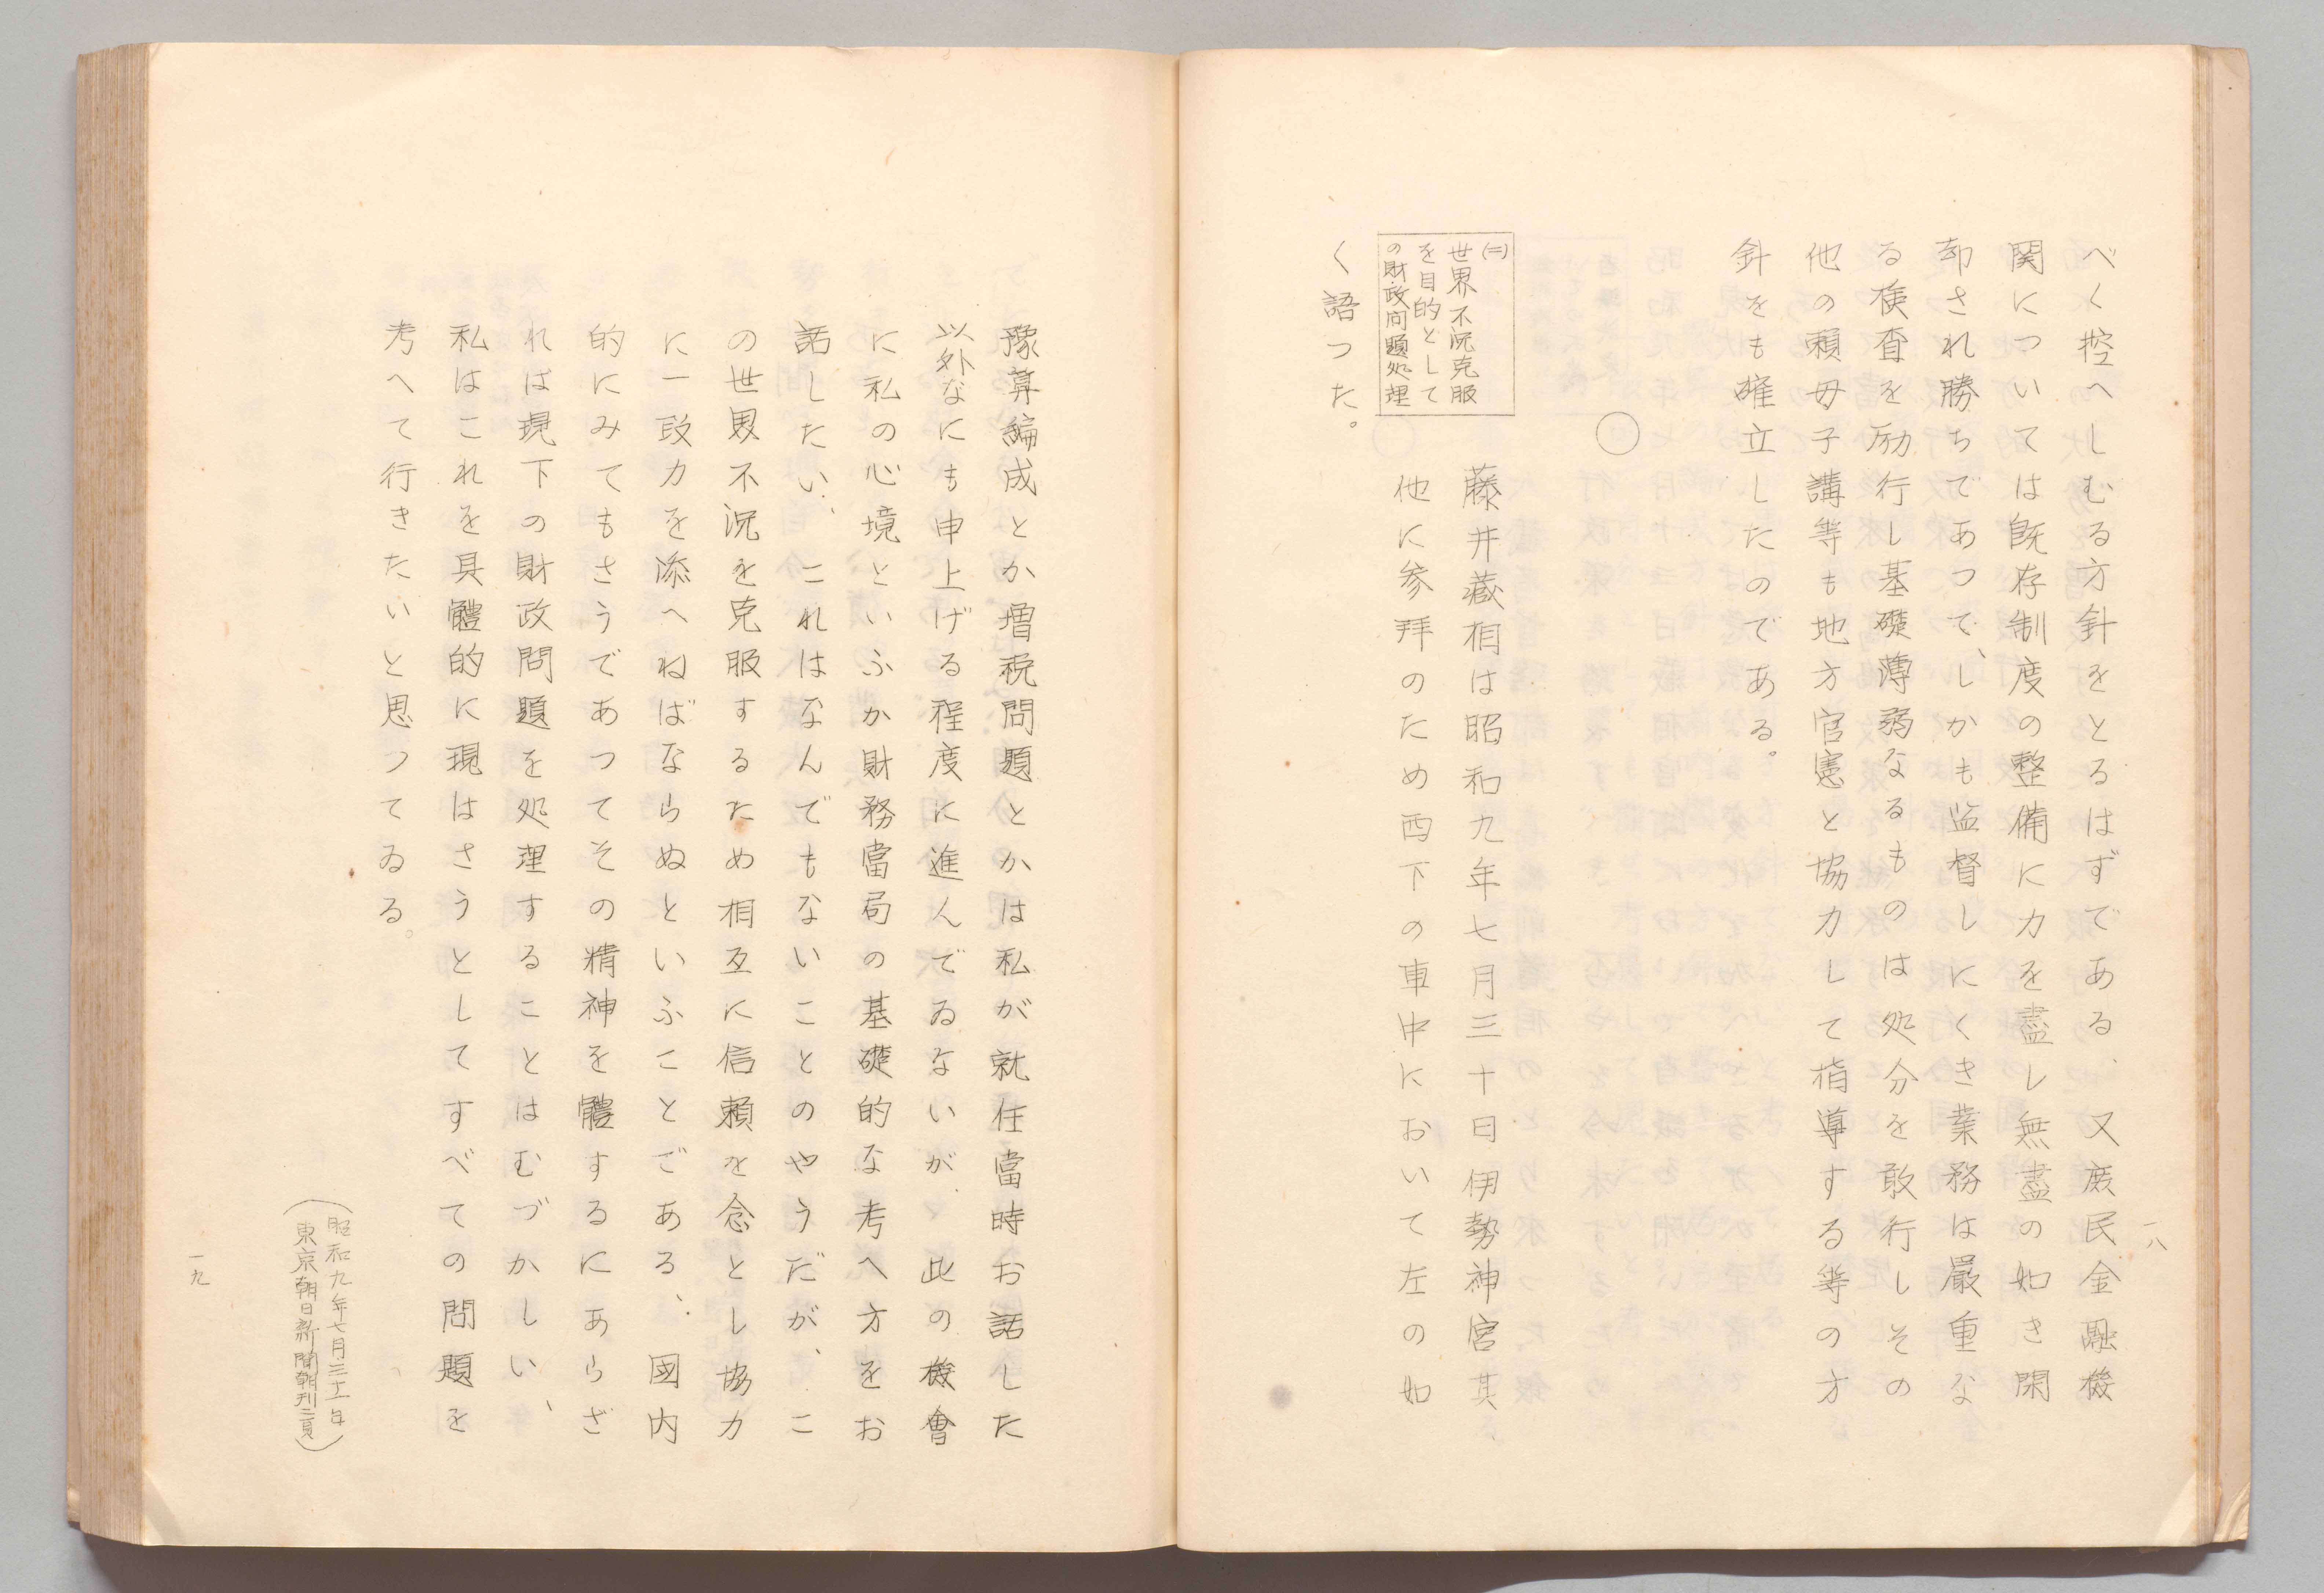 べく控へしむる方針をとるはずである、又庶民金融機
関については既存制度の整備に力を盡し無盡の如き閑
却され勝ちであつて、しかも監督しにくき業務は嚴重な
る檢査を励行し基礎薄弱なるものは処分を敢行しその
他の頼母子講等も地方官憲と協力して指導する等の方
針をも確立したのである。
○
(二)
世界不況克服
を目的として
の財政问題処理
藤井藏相は昭和九年七月三十日伊勢神宮其
他に参拜のため西下の車中において左の如
く語つた。
一八
豫算編成とか増税問題とかは私が就任當時お話した
以外なにも申上げる程度に進んでゐないが、此の機會
に私の心境といふか財務當局の基礎的な考へ方をお
話したい、これはなんでもないことのやうだが、こ
の世界不況を克服するため相互に信頼を念とし協力
に一段力を添へねばならぬといふことである、國内
的にみてもさうであつてその精神を體するにあらざ
れば現下の財政問題を処理することはむづかしい、
私はこれを具體的に現はさうとしてすべての問題を
考へて行きたいと思つてゐる。
(昭和九年七月三十一日
東京朝日新聞朝刊二頁)
一九